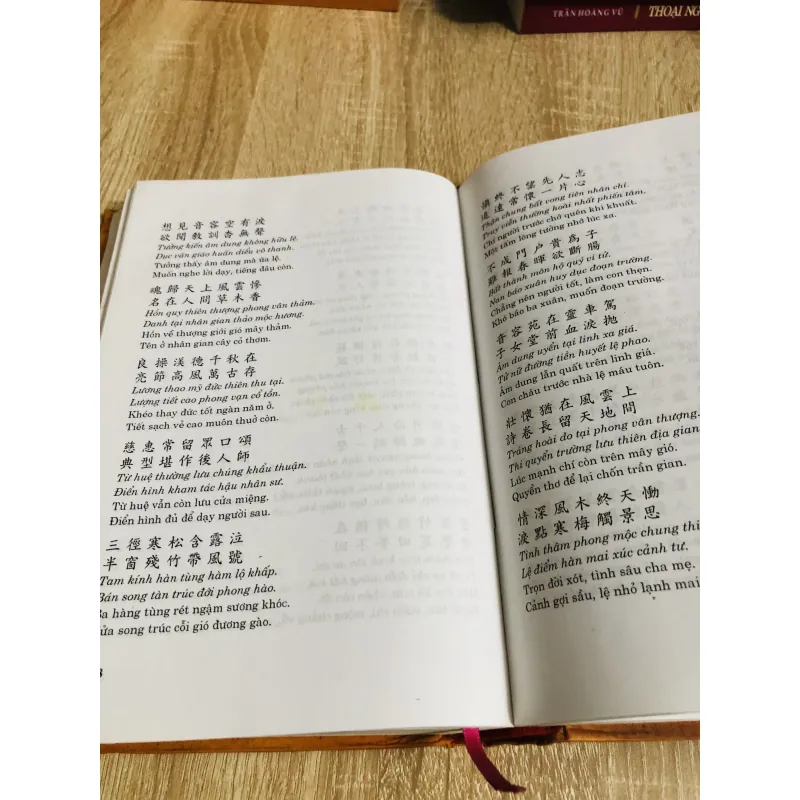 TRẦN HOÀNG VŨ
THOẠI NG
想見音容空有淚
欲聞教訓杳無聲
Tưởng kiến âm dung không hữu lệ.
Dục văn giáo huấn diểu vô thanh.
Tưởng thấy âm dung mà ứa lệ.
Muốn nghe lời dạy, tiếng đâu còn.
魂歸天上風雲慘
名在人間草木香
Hồn quy thiên thượng phong vân thảm.
Danh tại nhân gian thảo mộc hương.
Hồn về thượng giới gió mây thảm.
Tên ở nhân gian cây cỏ thơm.
良操渼德千秋在
亮節高風萬古存
Lương thao mỹ đức thiên thu tại.
Lượng tiết cao phong vạn cổ tồn.
Khéo thay đức tốt ngàn năm ở.
Tiết sạch vẻ cao muôn thuở còn.
慈惠常留眾口頌
典型堪作後人師
Từ huệ thường lưu chúng khẩu thuận.
Điển hình kham tác hậu nhân sư.
Từ huệ vẫn còn lưu cửa miệng.
Điển hình đủ để dạy người sau.
三徑寒松含露泣
半窗殘竹帶風號
Tam kính hàn tùng hàm lộ khấp.
Bán song tàn trúc đới phong hào.
a hàng tùng rét ngậm sương khóc.
ửa song trúc cỗi gió đương gào.
慎終不望先人志
追遠常懷一片心
Thận chung bất vong tiên nhân chí.
Truy viễn thường hoài nhất phiến tâm.
Chữ người trước chớ quên khi khuất.
Một tấm lòng tưởng nhớ lúc xa.
不成門户貴爲子
難報春暉欲斷腸
Bất thành môn hộ quý vi tử.
Nan báo xuân huy dục đoạn trường.
Chẳng nên người tốt, làm con thẹn.
Khó báo ba xuân, muốn đoạn trường.
音容苑在靈車駕
子女堂前血淚拋
Âm dung uyển tại linh xa giá.
Tử nữ đường tiền huyết lệ phao.
Âm dung lẩn quất trên linh giá.
Con cháu trước nhà lệ máu tuôn.
壯懷猶在風雲上
詩卷長留天地間
Tráng hoài do tại phong vân thượng.
Thi quyển trường lưu thiên địa gian.
Lúc mạnh chí còn trên mây gió.
Quyển thơ để lại chốn trần gian.
情深風木終天慟
淚點寒梅觸景思
Tình thâm phong mộc chung thi
Lệ điểm hàn mai xúc cảnh tư.
Trọn đời xót, tình sâu cha mẹ.
Cảnh gợi sầu, lệ nhỏ lạnh mai